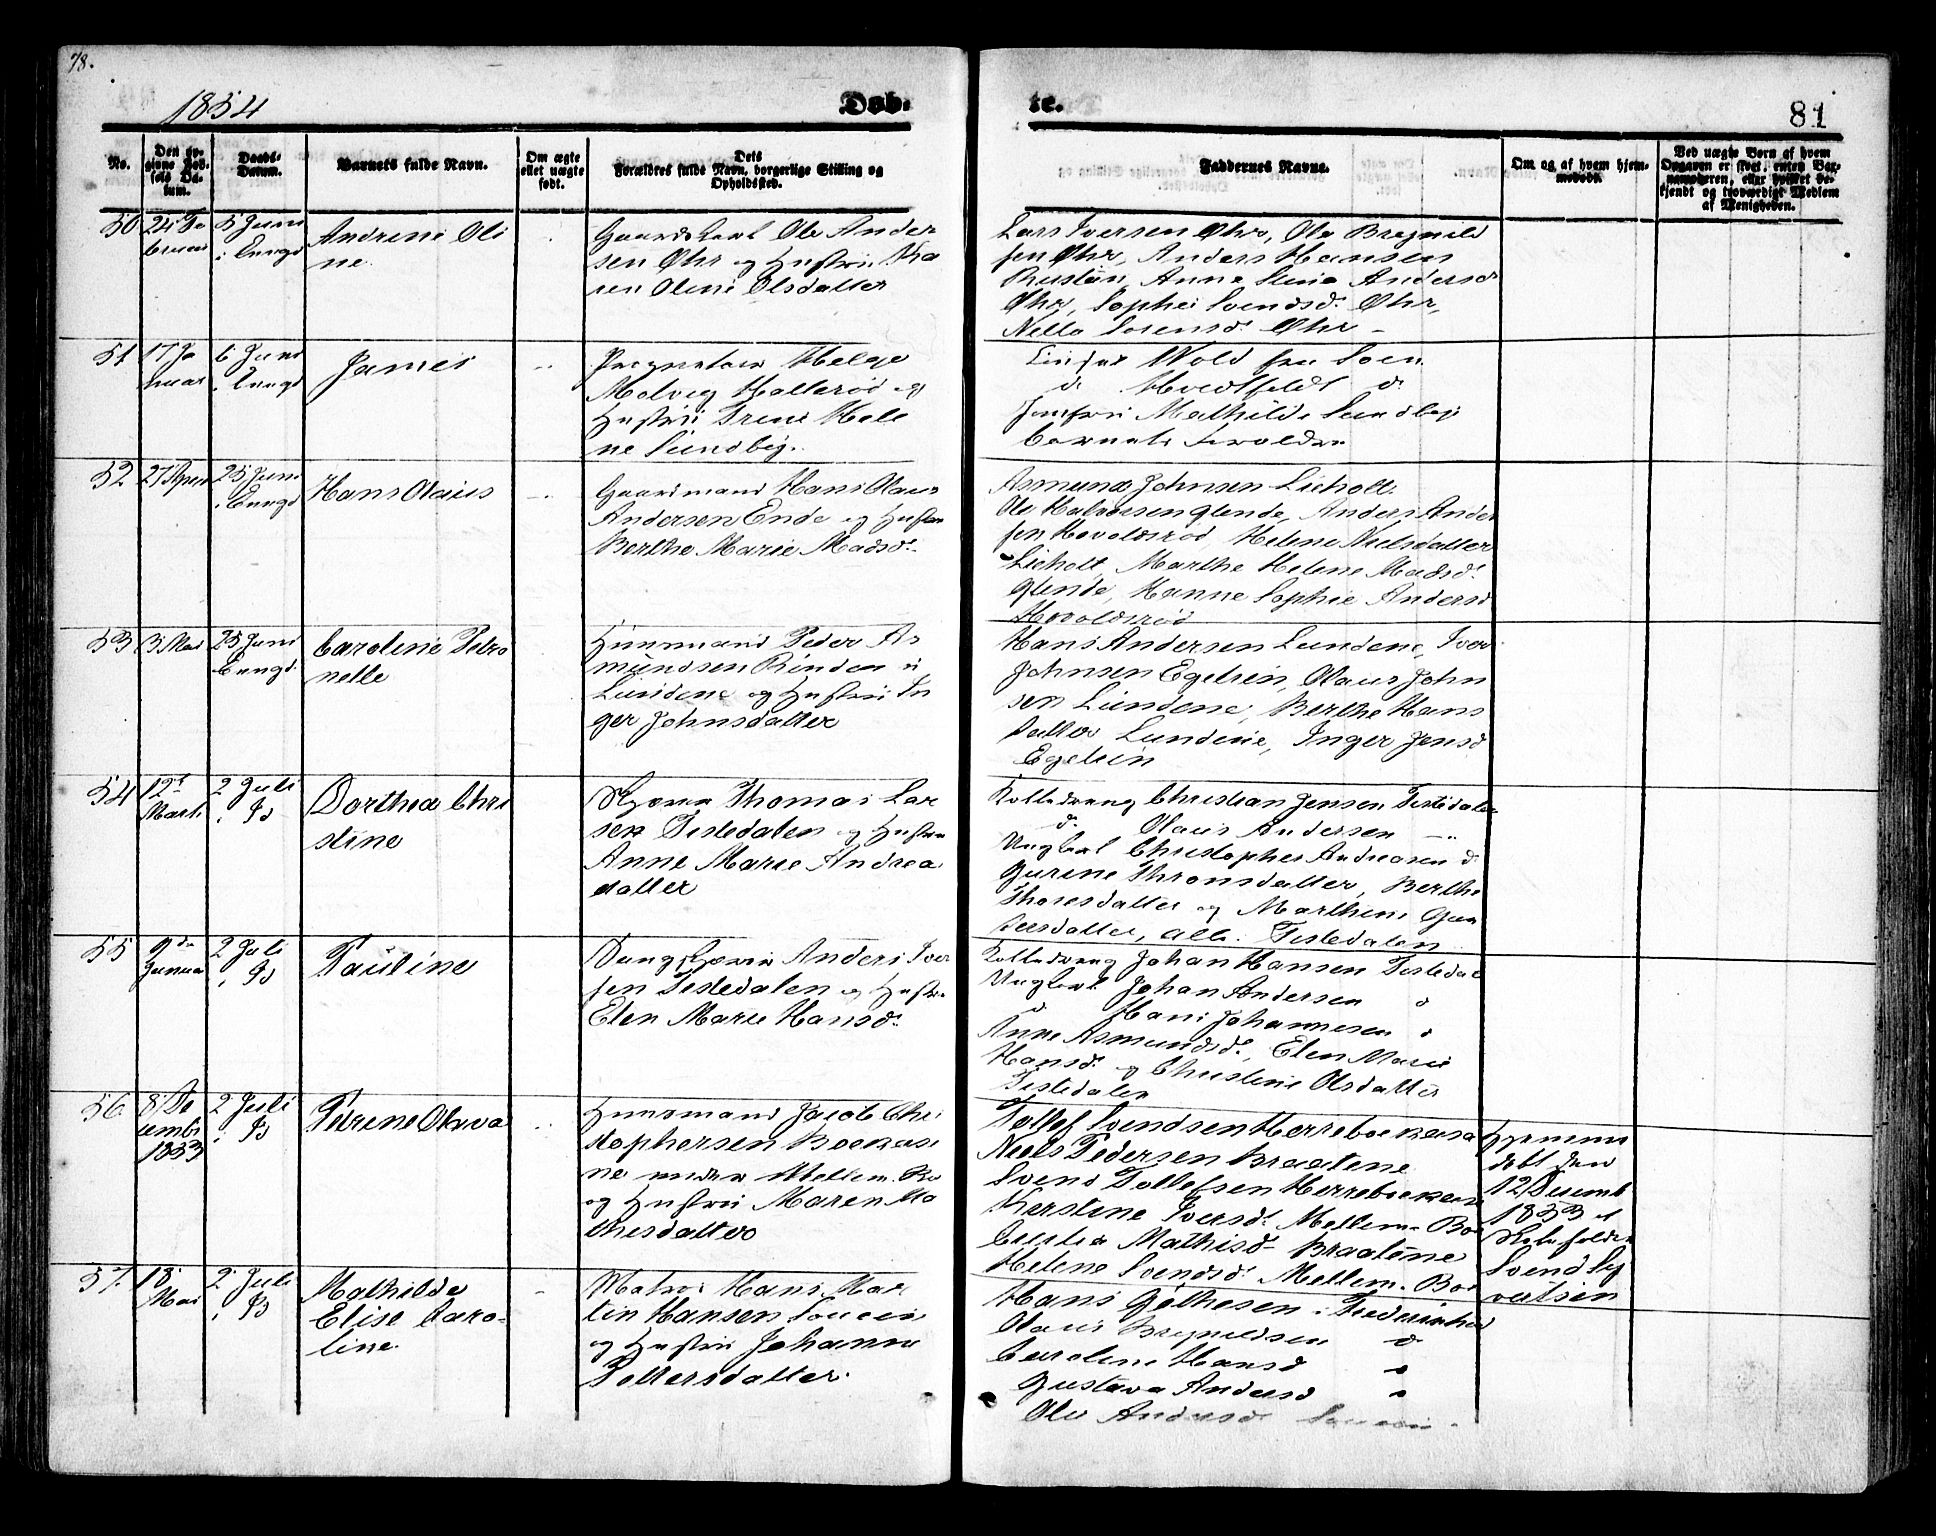 78.
1854
Døb-
te.
81
No.
Den op-
givne Fød-
sels Da-
tum.
Daabs-
Datum.
Barnets fulde Navn.
Om ægte
eller uægte
født.
Dets
Forældres fulde Navn, borgerlige Stilling og
Opholdssted.
Faddernes Navne.
Om og af hvem hjem-
medøbt.
Ved uægte Børn af hvem
Opgaven er skeet, enten Bar-
nemoderen, eller hvilket be-
kjendt og troværdigt Medlem
af Menigheden.
50
24 Fe
bruar
5 Juni
i Enngd
Andrine Oli
ne
Gaardskarl Ole Ander
sen Øhr og Hustru Ka
ren Oline Olsdatter
Lars Iversen Øhr, Ole Brynild
sen Øhr, Anders Hansen
Anne Andersd
Øhr, Sophie Svendsd. Øhr,
Nella Sørensd. Øhr -
51
17 Ja
nuar
6 Juni
i Enngd
James
Helge
Molvig Hallerød og
Hustru Irene Hele
ne Sundbye.
Wold fra
d. Hvidtfeldt d
Jomfru Mathilde Sundbye
Barnets Forældre
52
27 April
25 Juni
i Enngd
Hans Olaus
Gaardmand Hans Olaus
Andersen Ende og Hustru
Berthe Marie Madsd.
Asmund Johnsen Lieholt
Ole Halvorsen Glende, Anders Ander
sen Hovaldsrød Helene Nielsdatter
Lieholt, Marthe Helene Madsd.
Glende, Hanne Sophie Andersd
Hovaldsrød
53
3 Mai
25 Juni
i Enngd.
Caroline Petro
nelle
Huusmand Peder As
mundsen Rinden u
Lundene og Hustru In
ger Johnsdatter
Hans Andersen Lundene, Iver
Johnsen Egelien, Olaus John
sen Lundene, Berthe Hans
datter Lundene, Inger Jensd
Egelien
54
12te
Marts
2 Juli
i Is
Dorthea Chri
stine
Thomas Lar
sen Tistedalen og Hustru
Anne Marie Andrea
datter
Christian Jensen Tistedalen
d. Olaus Andersen - "
Ungkarl Christopher Andreasen d.
Gurine Thronsdatter, Berthe
Thoresdatter og Marthine Gun
dersdatter, alle Tistedalen
55
9de
Januar
2 Juli
i Is
Pauline
Anders Iver
sen Tistedalen og Hustru
Elen Marie Hansd.
Johan Hansen Tistedal
Ungkarl Johan Andersen d
d Hans Johannesen d
Anne Asmundsd., Elen Marie
Hansd. og Christine Olsdatter
Tistedalen
56
8 De
cemb
1853
2 Juli
i Is
Petrine Olava
Huusmand Jacob Chri
stophersen Bockasi
ne under Mellem Bo
og Hustru Maren Ma
thisdatter
Tollef Svendsen Herrebockasa
Niels Pedersen Braatene
Svend Tollefsen Herrebockasa
Kirstine Iversd. Mellem-Boe
Mathisd. Braatene
Helene Svendsd. Mellem-Boe
Hjemme
døbt den
12 Desemb
1853 af
Svend Sy
vertsen
57.
18.
Mai
2 Juli
i Is
Mathilde
Elise Caro-
line.
Matros Hans Mar
tin Hansen
og Hustru Johanne
Pettersdatter.
Hans Fredrikshald
Olaus Brynildsen d
Caroline Hansd d
Gustava Andersd d
Ole Andersd